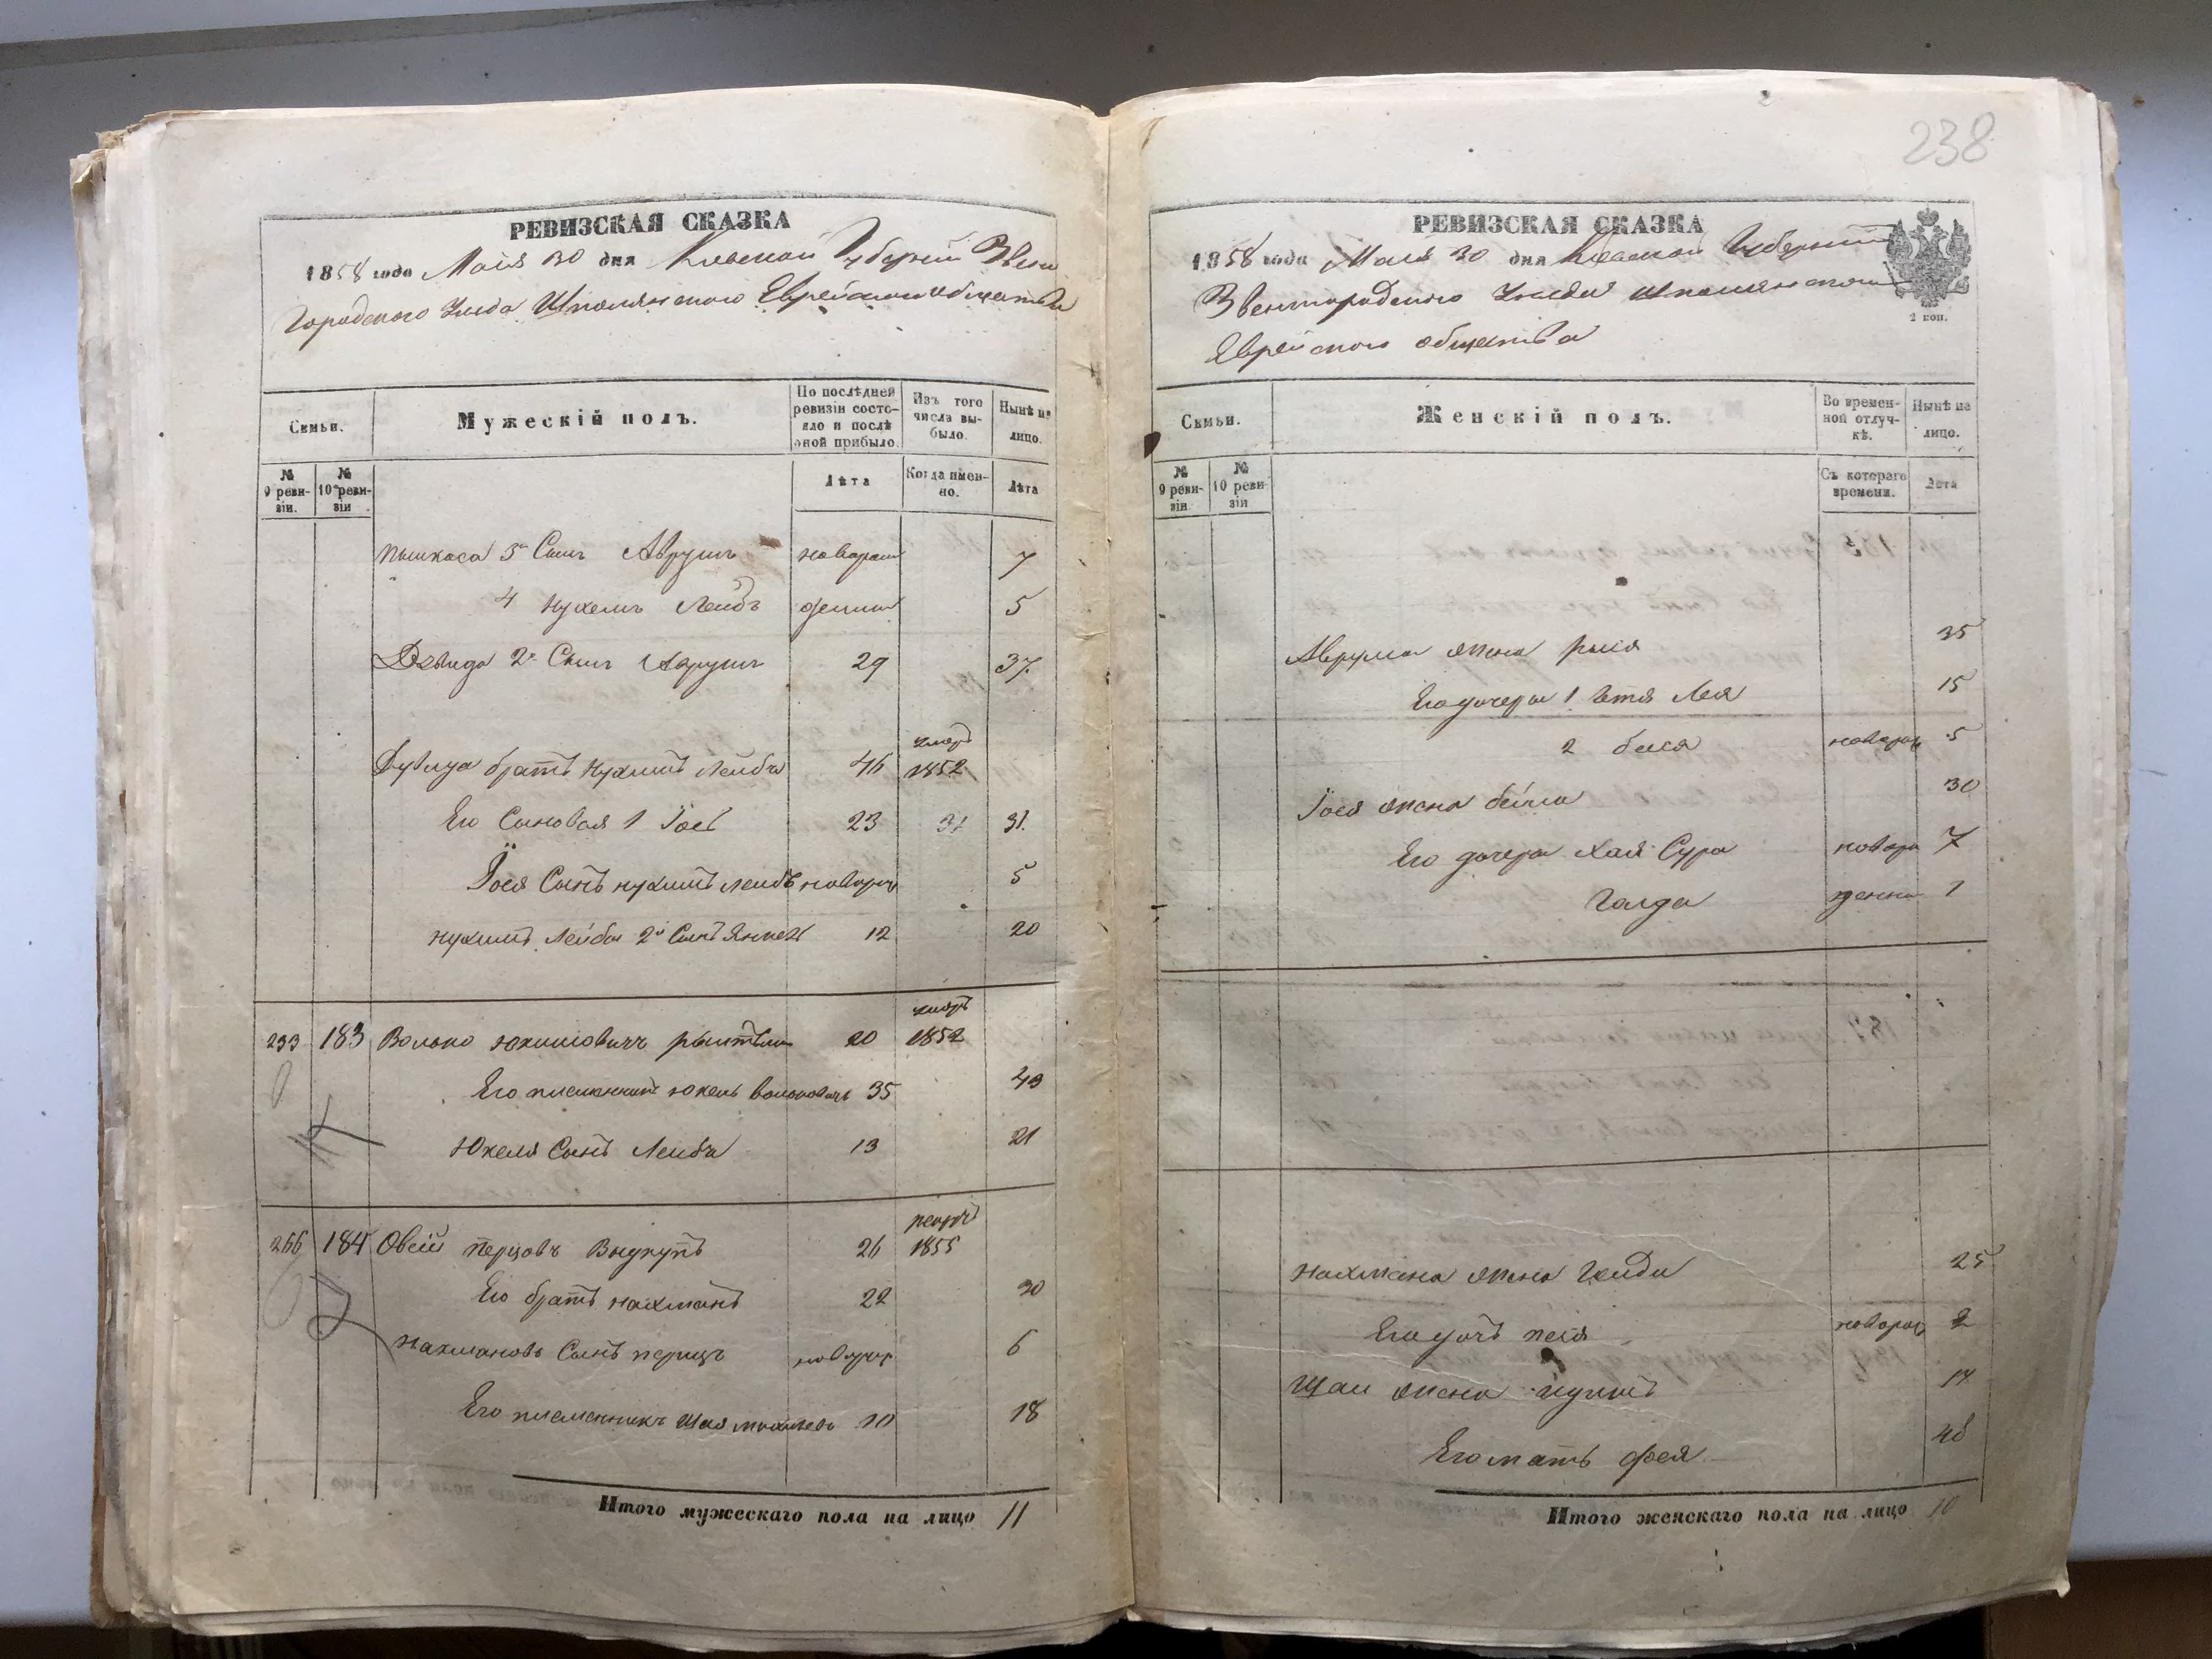 РЕВИЗСКАЯ СКАЗКА
1858 года Мая 30 дня Киевской Губерніи Звени
Городского Уезда Шполянского Еврейского общества
Семьи.
Мужескій полъ.
По послѣдней ревизіи состояло и послѣ оной прибыло.
Изъ того числа выбыло.
Нынѣ на лицо.
№ 9 ревизіи.
№ 10 ревизіи
Лѣта
Когда именно.
Лѣта
3й Сынъ Аврумъ 7
4 Нухемъ Лейбъ 5
2й Сынъ Аврумъ 29 37
братъ Нухимъ Лейба 46 умеръ 1852
Его Сыновья 1 Іось 23 31 31.
Іося Сынъ Нухимъ Лейбъ новорож 5
Нухимъ Лейбы 2й Сынъ Янкель 12 20
233 183 Волько 20 умеръ 1852
Его племянникъ Юкель Вольковичъ 35 43
Юкеля Сынъ Лейба 13 21
266 184 Овсій Перцовъ 26 1855
Его братъ Нахманъ 22 30
Нахмановъ Сынъ Перецъ новорож 6
Его племянникъ Шая 10 18
Итого мужескаго пола на лицо 11
238
РЕВИЗСКАЯ СКАЗКА
1858 года Мая 30 дня Киевской Губерніи
Звенигородского Уезда Шполянского
Еврейского общества
2 коп.
Семьи.
Женскій полъ.
Во временной отлучкѣ.
Нынѣ на лицо.
№ 9 ревизіи
№ 10 ревизіи
Съ котораго времени.
Лѣта
Аврума жена 35
Его дочери 1 Лея 15
2 бася новорож 5
Іося жена бейла 30
Его дочери Хая Сура новорож 7
Голда денна 1
Нахмана жена 25
Его дочь песя новорож 2
Шаи жена
Его мать фрея 48
Итого женскаго пола на лицо 10